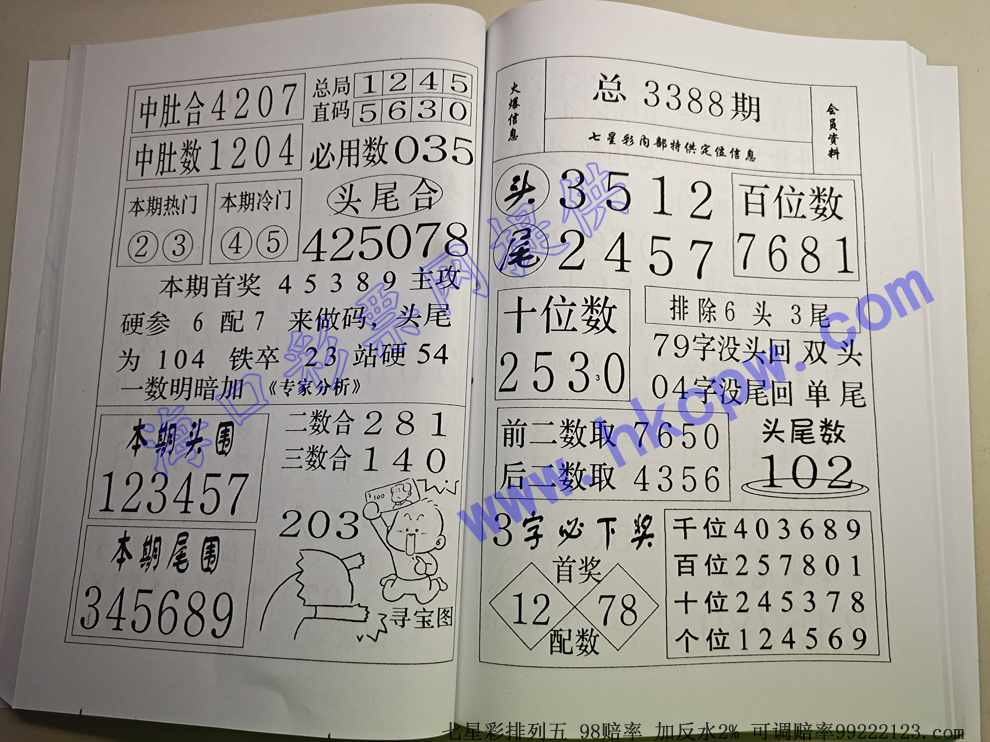 中肚合4207
总局 1245
直码 5630
中肚数1204
必用数035
本期热门
②③
本期冷门
④⑤
头尾合
425078
本期首奖 45389 主攻
硬参 6 配7 来做码，头尾
为 104 铁卒 23 站硬 54
一数明暗加 《专家分析》
本期头围
123457
本期尾围
345689
二数合281
三数合140
203
100
寻宝图
火爆信息
总 3388期
七星彩内部特供定位信息
会员资料
头 3512
尾 2457
百位数
7681
十位数
25330
排除6 头 3尾
79字没头回 双 头
04字没尾回 单 尾
前二数取 7650
后二数取 4356
头尾数
102
3字必下奖
首奖
12 78
配数
千位403689
百位257801
十位245378
个位124569
海口彩票网提供
www.hkcpw.com
七星彩排列五 98赔率 加反水2% 可调赔率99222123.com